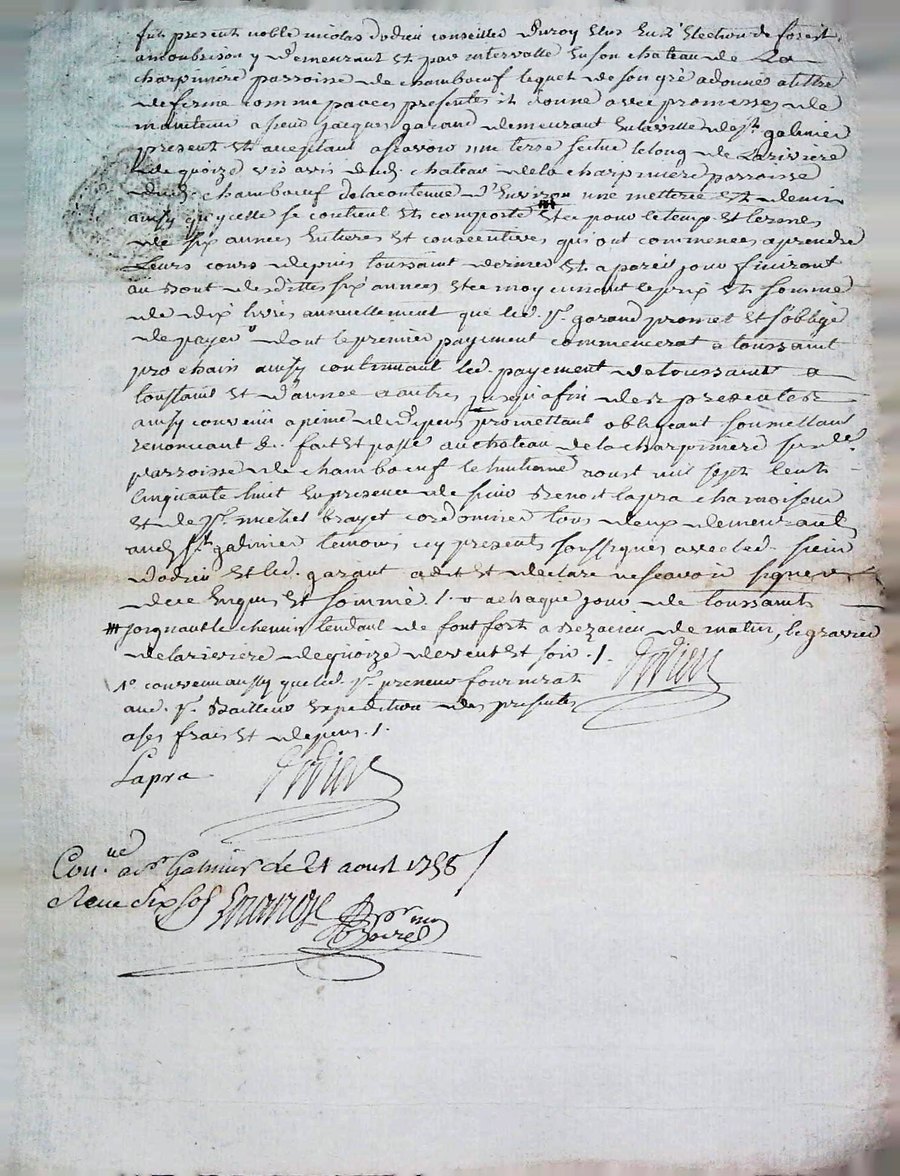 fut present noble nicolas dodieu conseiller du roy elus en l'election de forest
a montbrison y demeurant et par intervalle en son chateau de La
charpiniere parroisse de chambœuf lequel de son gré a donné a titre
de ferme comme par ces presentes il donne avec promesses de
maintenir a sieur jacques garand demeurant en la ville de st galmier
present et acceptant a scavoir une terre scitue le long de la riviere
de quoize vis avis dud. chateau de la charpiniere parroisse
dud. chambœuf de la contenue d'environ une metterie et demi
ainsy qu'ycelle se contient et comporte et ce pour le temp et termes
de six années entieres et consecutives qui ont commencés a prendre
Leurs cours depuis toussaint dernier et a pareil jour finiront
au bout desdittes six années et ce moyennant le prix et somme
de dix livres annuellement que led. sr. garand promet et s'oblige
de payer dont le premier payement commencerat a toussaint
prochain ainsy continuant led. payement de toussaint a
toussaint et d'année a autres jusqu'a fin des presentes
ainsy convenu a peine de depens promettant obligeant soumettant
renonçant &. fait et passé au chateau de la charpiniere susde.
parroisse de chambœuf le huitieme aoust mil sept cent
cinquante huit en presence de sieur Benoit lapra chamoiseur
et de sr. michel brayet cordonnier tous deux demeurants
aud. st. galmier temoins icy presents soussignes avec led. sieur
dodieu et led. garant a dit et declaré ne scavoir signer
de ce enquis et sommé ./. a chaque jour de toussaints
joignant le chemin tendant de fontfort a bezacieu de matin, le gravier
de la riviere de quoize de vent et soir ./. Dodieu
convenu aussy que led. sr. preneur fournirat
aud. sr. Bailleur expedition des presentes
a ses frais et depens ./.
Lapra Dodieu
Con.lle a st Galmier le 21 aout 1758
Reçu six sols